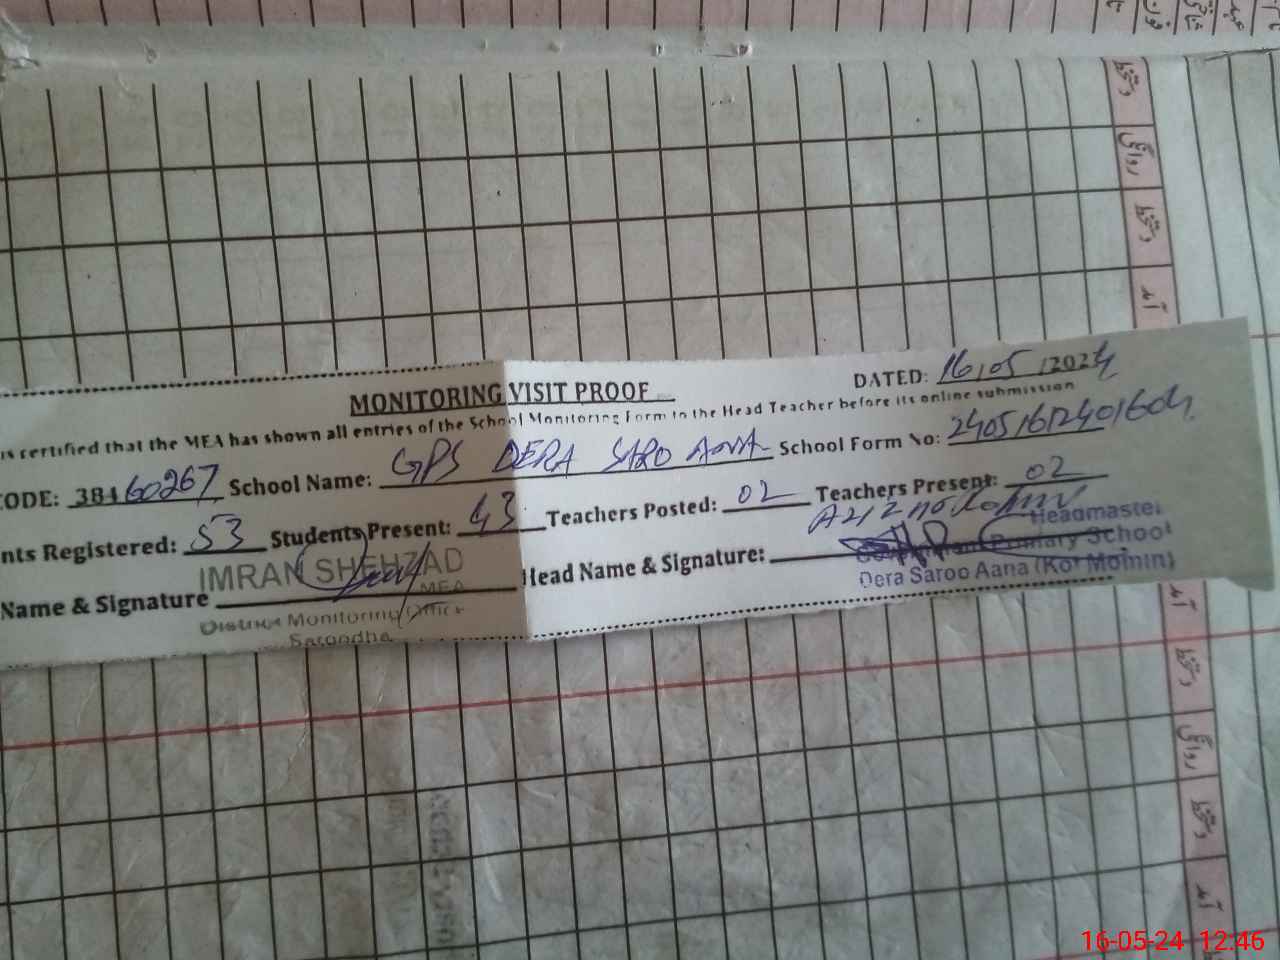 دستخط
روانگی
دستخط
آمد
MONITORING VISIT PROOF
DATED: 16/05/2024
is certified that the MEA has shown all entries of the School Monitoring Form to the Head Teacher before its online submission
CODE: 38460267 School Name: GPS DERA SARO AANA School Form No:
nts Registered: 53 Students Present: 43 Teachers Posted: 02 Teachers Present: 02
IMRAN SHEHZAD
MEA
Name & Signature
District Monitoring Office
Sargodha
Head Name & Signature:
Headmaster
Government Primary School
Dera Saroo Aana (Kot Momin)
آمد
دستخط
روانگی
دستخط
آمد
16-05-24 12:46